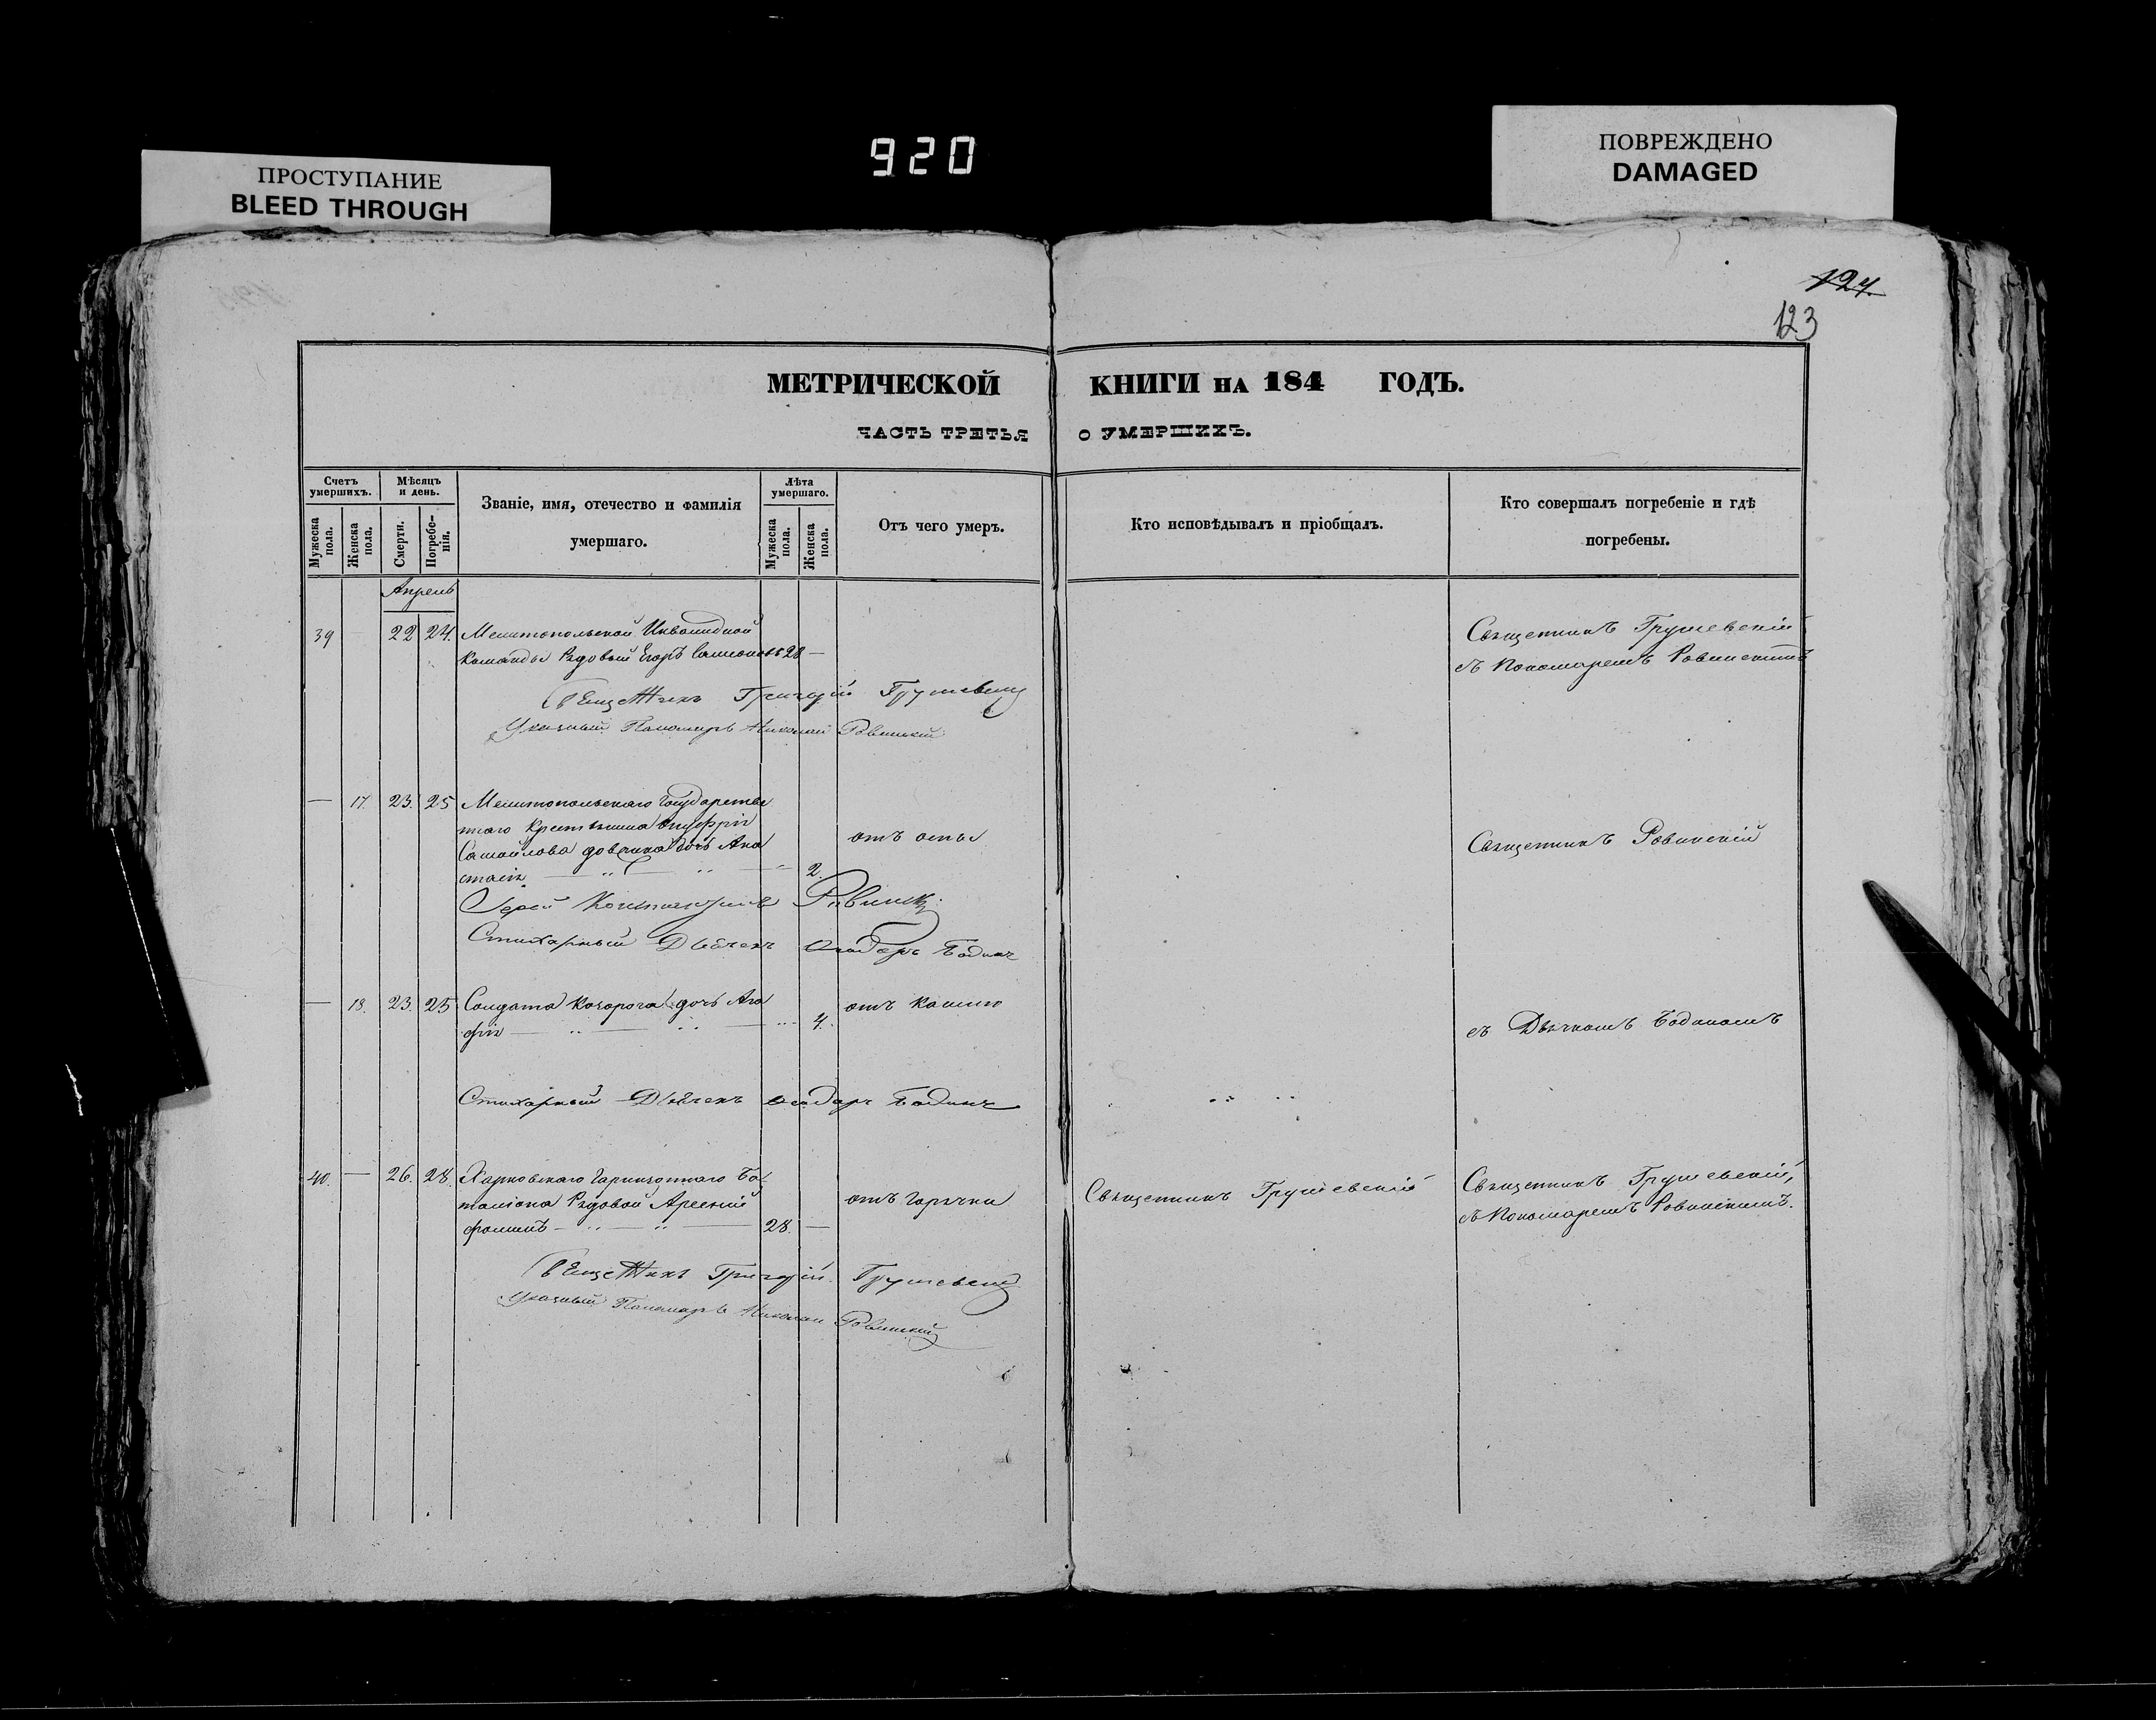 920
ПРОСТУПАНИЕ
BLEED THROUGH
ПОВРЕЖДЕНО
DAMAGED
124
123
МЕТРИЧЕСКОЙ КНИГИ НА 184 ГОДЪ.
ЧАСТЬ ТРЕТЬЯ О УМЕРШИХЪ.
Счетъ умершихъ.
Мужеска пола.
Женска пола.
Мѣсяцъ и день.
Смерти.
Погребе-нія.
Званіе, имя, отечество и фамилія
умершаго.
Лѣта умершаго.
Мужеска пола.
Женска пола.
Отъ чего умеръ.
Кто исповѣдывалъ и пріобщалъ.
Кто совершалъ погребеніе и гдѣ
погребены.
Апрель
39 — 22 24. Мелитопольской Инвалидной
Команды Рядовый Егоръ 28 —
Священникъ Грушевскій
съ Пономаремъ Ровинскимъ
Священникъ Григорій Грушевскій
Указный Пономарь Николай Ровинскій
— 17. 23. 25 Мелитопольскаго Государствен
наго Крестьянина Онуфрія
Самойлова дочь Ана
стасія 2.
отъ оспы
Священникъ Ровинскій
Іерей Константинъ Ровинскій
Стихарный Дьячекъ Бодянъ
— 18. 23. 25 Солдата дочь Ага
фія 4.
отъ кашлю
съ Дьячкомъ Бодяномъ
Стихарный Дьячекъ Бодянъ
40. — 26. 28. Харковскаго Гарнизоннаго Ба
таліона Рядовой Арсеній
Фоминъ 28. —
отъ горячки
Священникъ Грушевскій
Священникъ Грушевскій,
съ Пономаремъ Ровинскимъ.
Священникъ Григорій Грушевскій
Указный Пономарь Николай Ровинскій